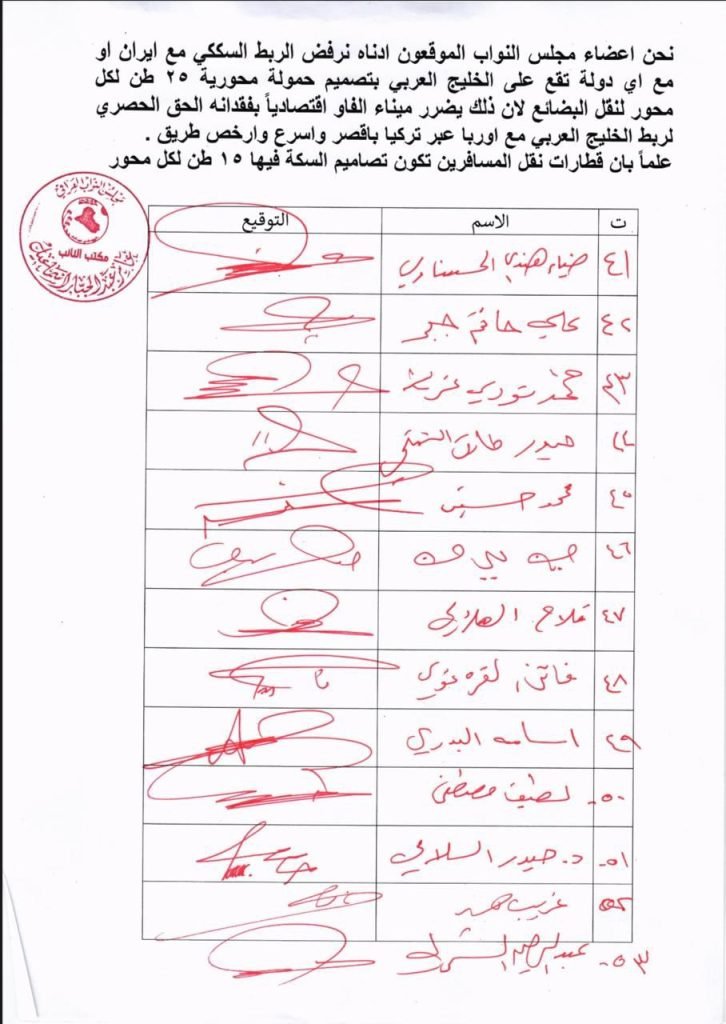 نحن اعضاء مجلس النواب الموقعون ادناه نرفض الربط السككي مع ايران او
مع اي دولة تقع على الخليج العربي بتصميم حمولة محورية ٢٥ طن لكل
محور لنقل البضائع لان ذلك يضرر ميناء الفاو اقتصادياً بفقدانه الحق الحصري
لربط الخليج العربي مع اوربا عبر تركيا باقصر واسرع وارخص طريق .
علماً بان قطارات نقل المسافرين تكون تصاميم السكة فيها ١٥ طن لكل محور
مجلس النواب العراقي
مكتب النائب
ت الاسم التوقيع
٤١ ضياء هندي الحسناوي
٤٢ علي جبر
٤٣ محمد نوري عزيز
حيدر طارق
٤٥ محمد حسين
٤٦
٤٧ فلاح الهلالي
٤٨ فاتن القره غولي
٤٩ اسامه البدري
٥٠- لطيف مصطفى
٥١- د. حيدر السلامي
٥٢ غريب
٥٣-